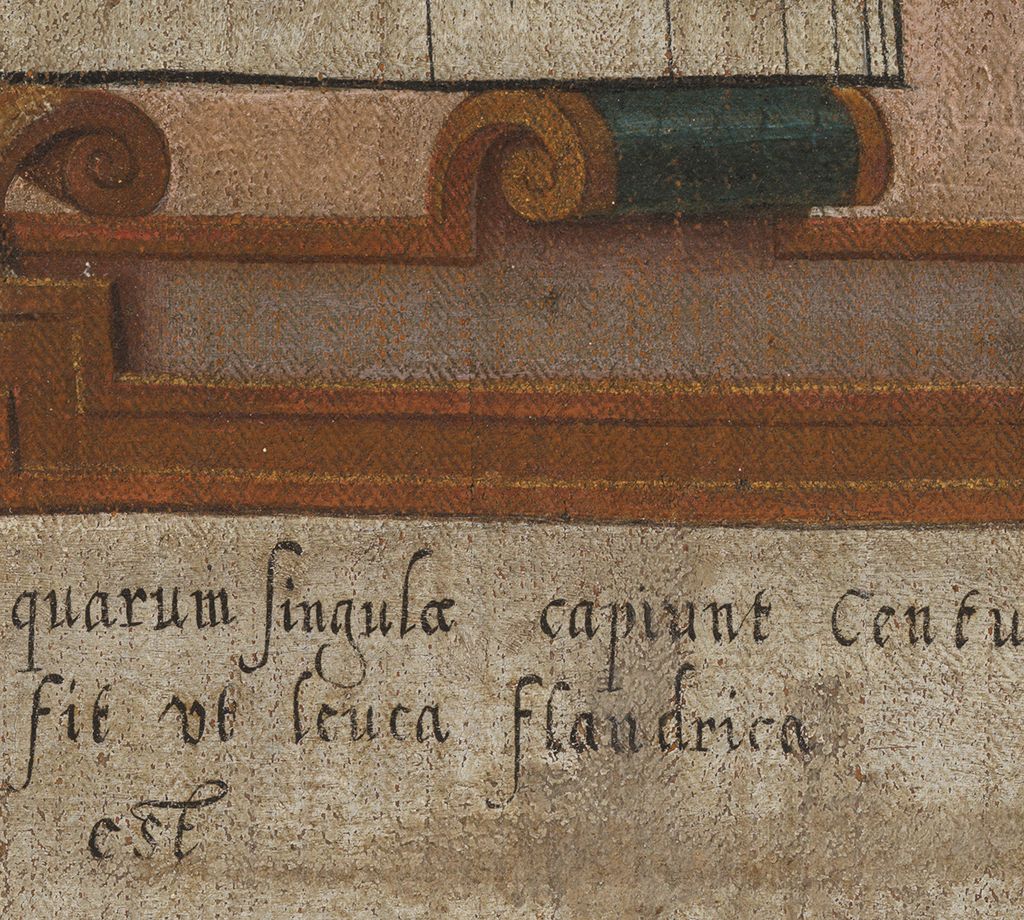 quarum singulæ capiunt Centu
fit vt leuca flandrica
est